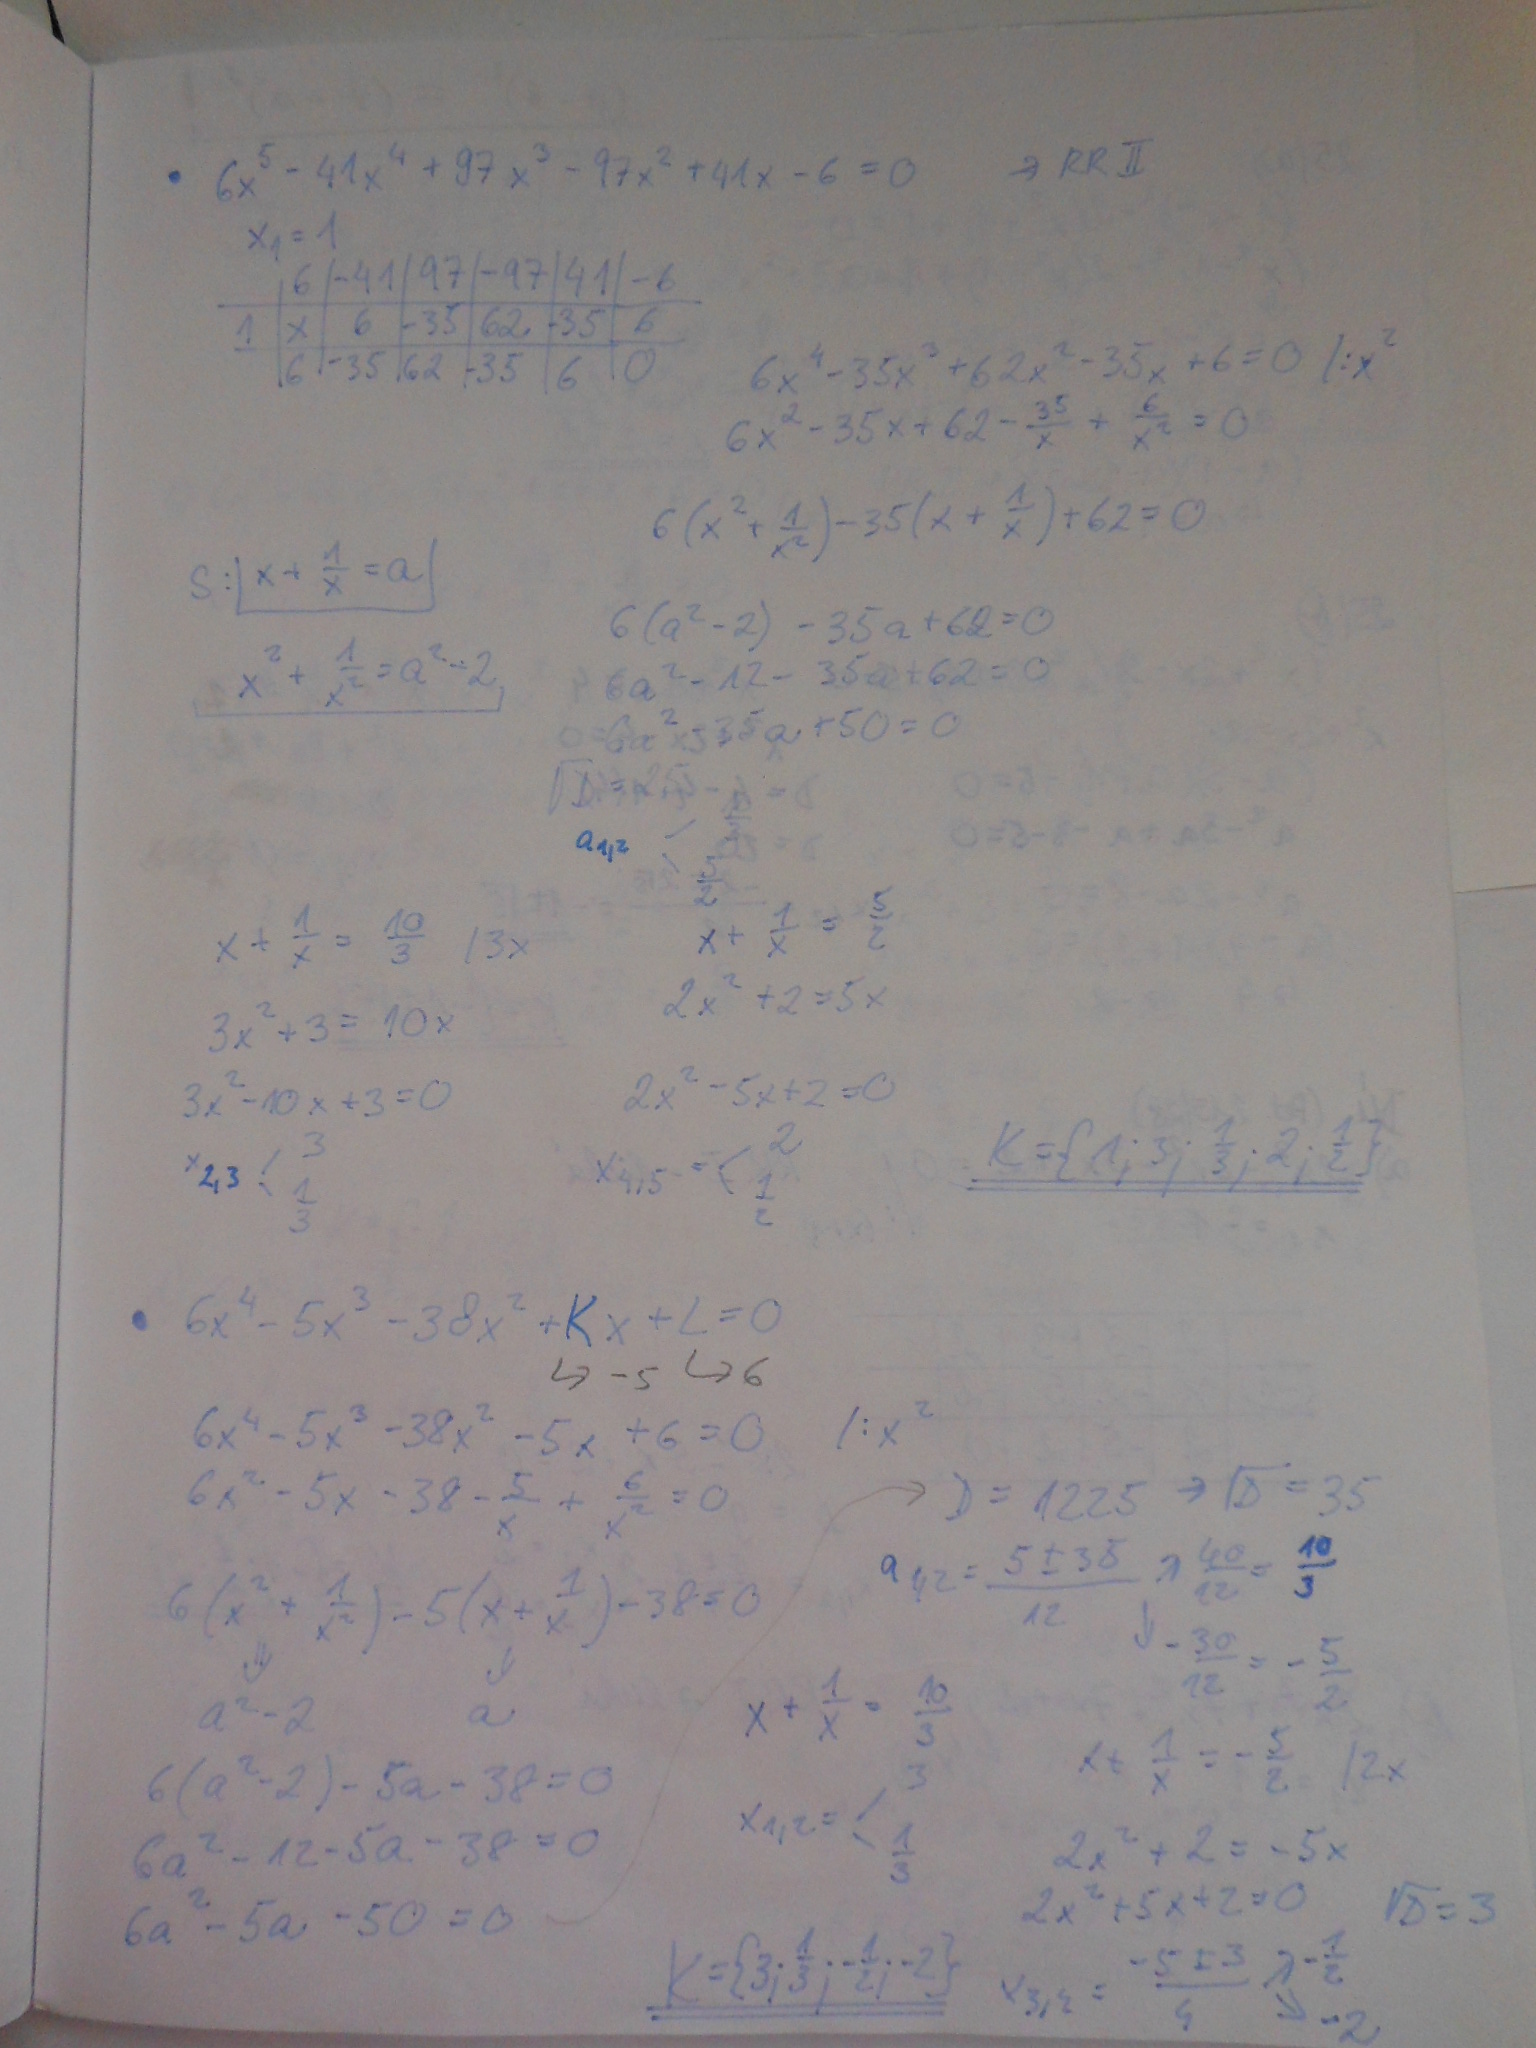 • 6x⁵ - 41x⁴ + 97x³ - 97x² + 41x - 6 = 0 → RR II
x₁ = 1
6 | -41 | 97 | -97 | 41 | -6
1 | x | 6 | -35 | 62 | -35 | 6
6 | -35 | 62 | -35 | 6 | 0
6x⁴ - 35x³ + 62x² - 35x + 6 = 0 /:x²
6x² - 35x + 62 - 35/x + 6/x² = 0
6(x² + 1/x²) - 35(x + 1/x) + 62 = 0
S: x + 1/x = a
x² + 1/x² = a² - 2
6(a² - 2) - 35a + 62 = 0
6a² - 12 - 35a + 62 = 0
6a² - 35a + 50 = 0
√D =
a₁,₂
5/2
x + 1/x = 10/3 /3x
3x² + 3 = 10x
3x² - 10x + 3 = 0
x₂,₃ < 3
1/3
x + 1/x = 5/2
2x² + 2 = 5x
2x² - 5x + 2 = 0
x₄,₅ = < 2
1/2
K = {1; 3; 1/3; 2; 1/2}
• 6x⁴ - 5x³ - 38x² + Kx + L = 0
↳ -5 ↳ 6
6x⁴ - 5x³ - 38x² - 5x + 6 = 0 /:x²
6x² - 5x - 38 - 5/x + 6/x² = 0
6(x² + 1/x²) - 5(x + 1/x) - 38 = 0
a² - 2 a
6(a² - 2) - 5a - 38 = 0
6a² - 12 - 5a - 38 = 0
6a² - 5a - 50 = 0
→ D = 1225 → √D = 35
a₁,₂ = (5 ± 35)/12 ↗ 40/12 = 10/3
↓ -30/12 = -5/2
x + 1/x = 10/3
x₁,₂ = < 3
1/3
x + 1/x = -5/2 /2x
2x² + 2 = -5x
2x² + 5x + 2 = 0 √D = 3
x₃,₄ = (-5 ± 3)/4 ↗ -1/2
↘ -2
K = {3; 1/3; -1/2; -2}